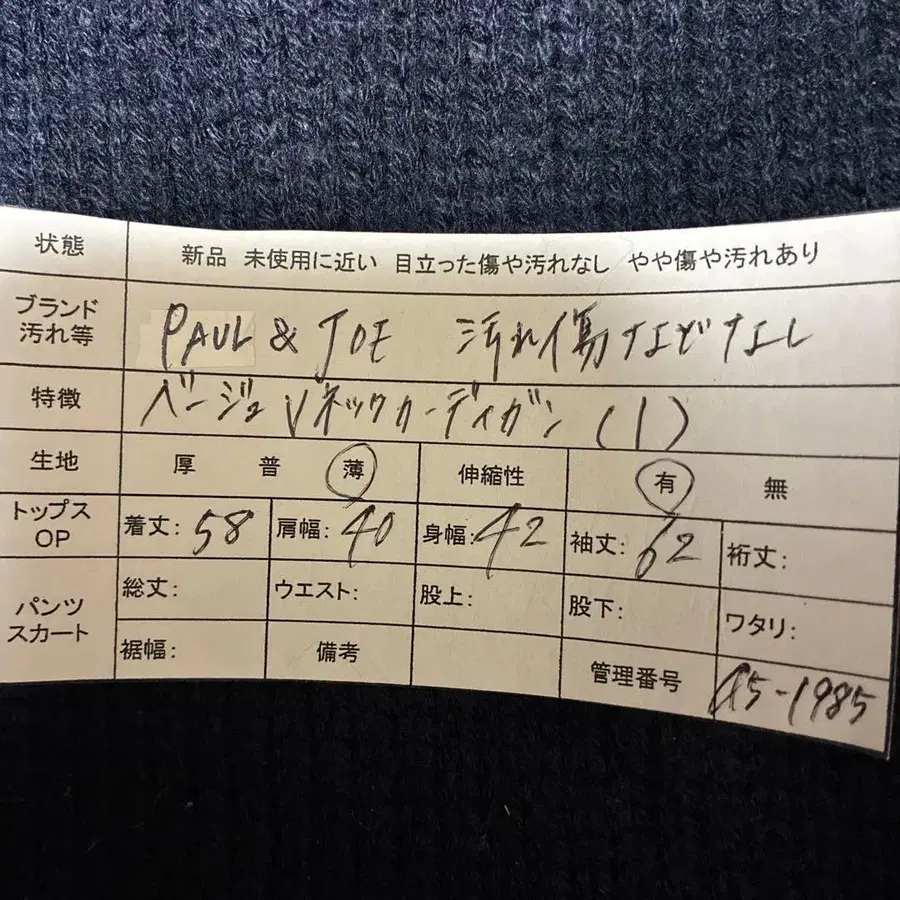 状態 新品 未使用に近い 目立った傷や汚れなし やや傷や汚れあり
ブランド
汚れ等 PAUL & JOE 汚れ傷などなし
特徴 ベージュ Vネックカーディガン (1)
生地 厚 普 薄 伸縮性 有 無
トップス
OP 着丈: 58 肩幅: 40 身幅: 42 袖丈: 62 裄丈:
パンツ
スカート 総丈: ウエスト: 股上: 股下: ワタリ:
裾幅: 備考 管理番号 A5-1985